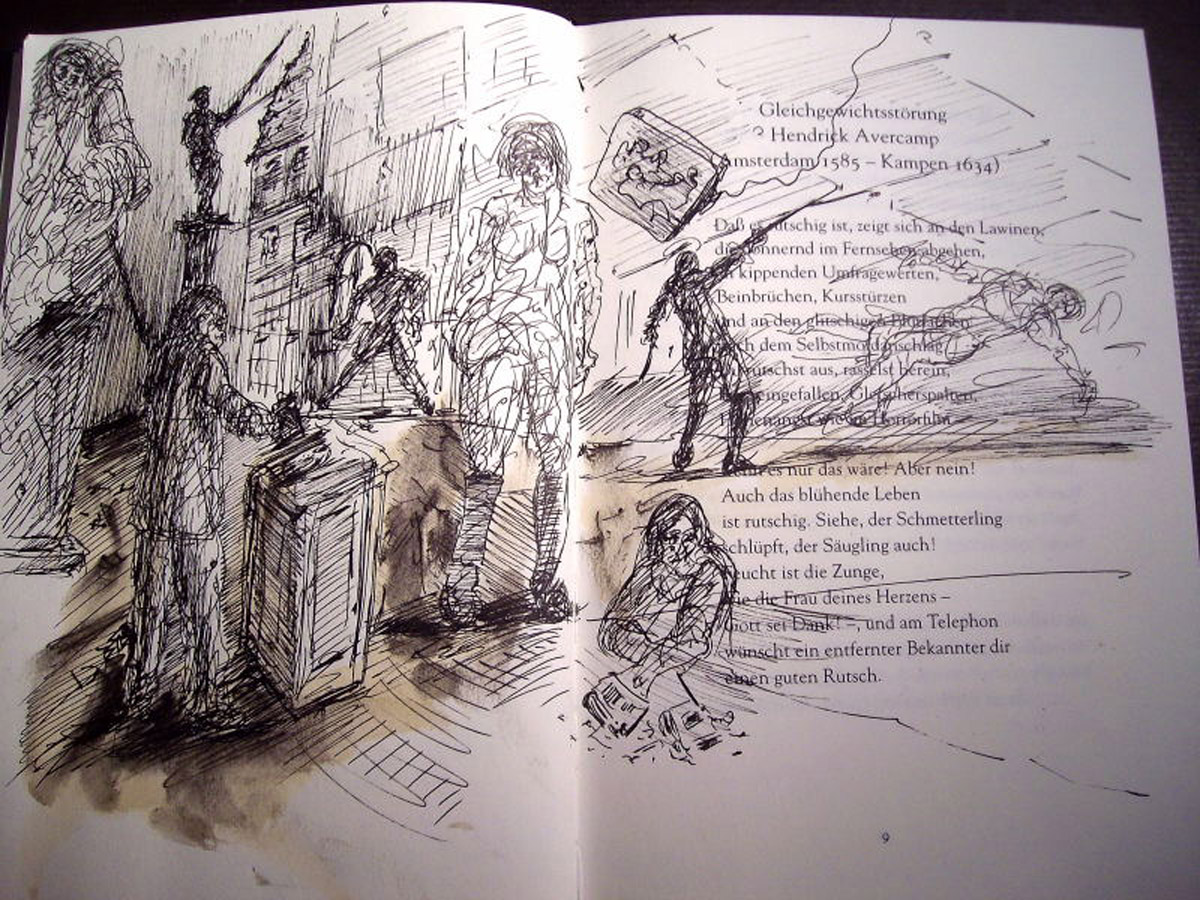 Gleichgewichtsstörung
Hendrick Avercamp
Amsterdam 1585 – Kampen 1634)
Daß es rutschig ist, zeigt sich an den Lawinen,
die donnernd im Fernsehen abgehen,
kippenden Umfragewerten,
Beinbrüchen, Kursstürzen
und an den glitschigen
nach dem Selbstmordanschlag
rutschst aus, rasselst herein,
eingefallen, Gletscherspalten,
wie im Horrorfilm –
es nur das wäre! Aber nein!
Auch das blühende Leben
ist rutschig. Siehe, der Schmetterling
schlüpft, der Säugling auch!
Feucht ist die Zunge,
wie die Frau deines Herzens –
Gott sei Dank! –, und am Telephon
wünscht ein entfernter Bekannter dir
einen guten Rutsch.
9